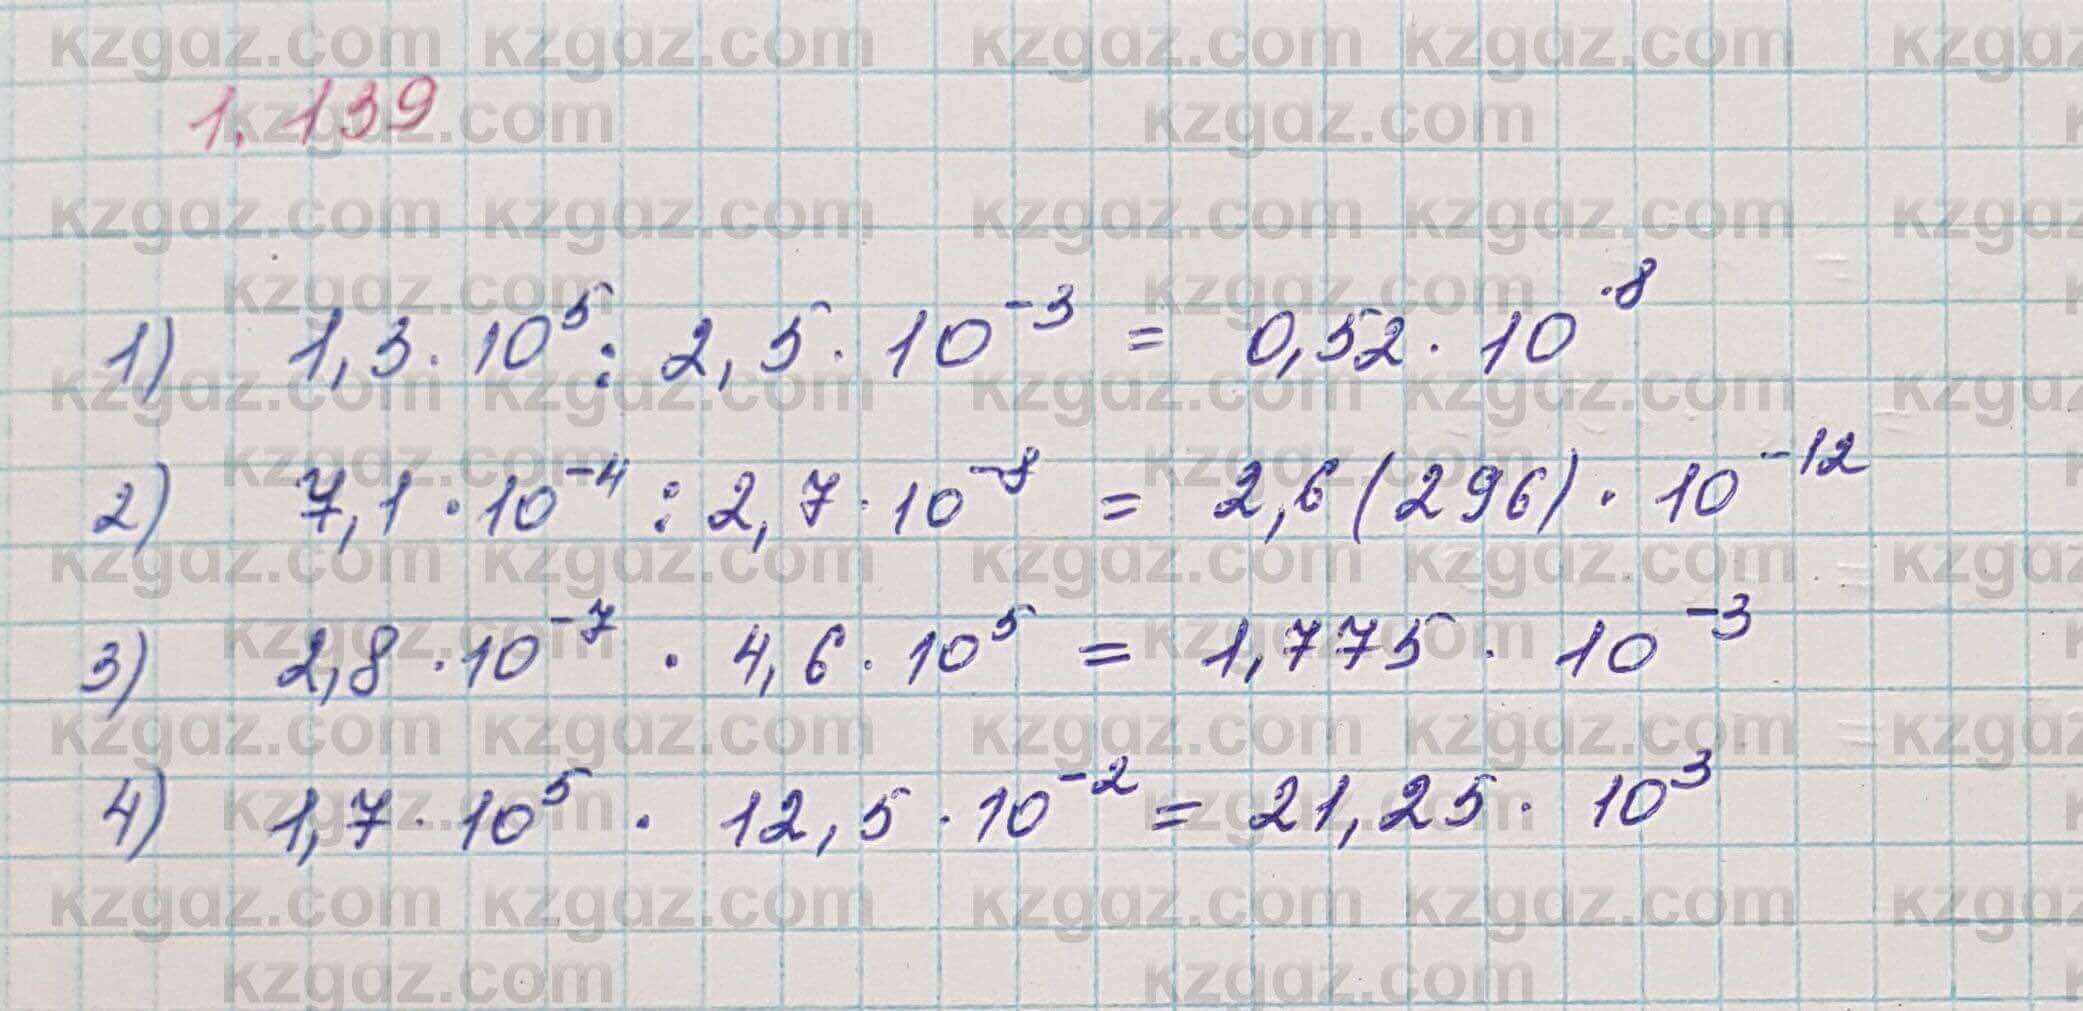 1.139
1) 1,3·10⁵ : 2,5·10⁻³ = 0,52·10⁸
2) 7,1·10⁻⁴ : 2,7·10⁻⁸ = 2,6(296)·10⁻¹²
3) 2,8·10⁻⁷ · 4,6·10⁵ = 1,775·10⁻³
4) 1,7·10⁵ · 12,5·10⁻² = 21,25·10³
kzgdz.com